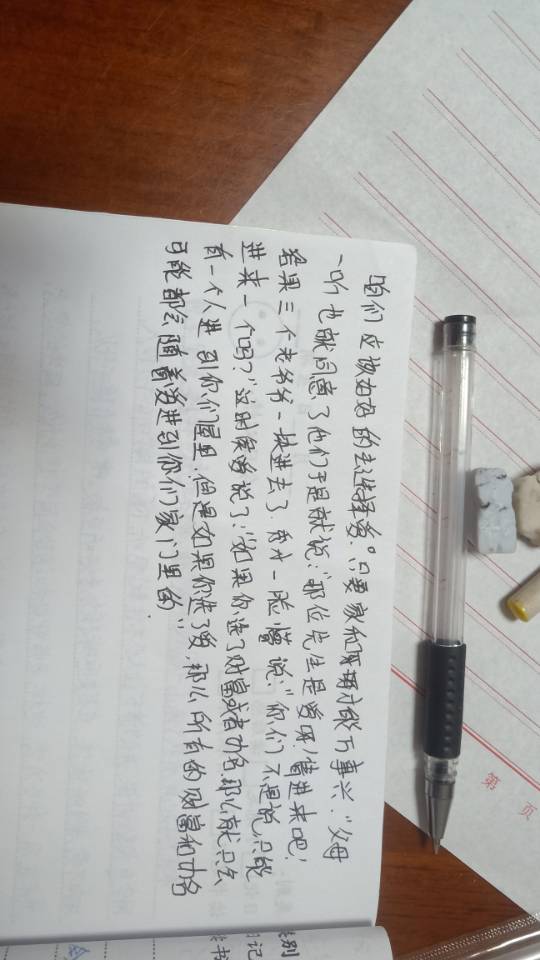 咱们应该好好的去选择爱。只要家和睦才能万事兴。”父母
一听也就同意了他们于是就说：“那位先生是爱呀！请进来吧！
结果三个老爷爷一块进去了. 我一脸懵说：“你们不是说只能
进来一个吗？”这时候爸说了：“如果你选了财富或者功名.那么就只会
有一个人进到你们屋里.但是如果你选了爱,那么所有的财富和功名
可能都会随着爱进到你们家门里的”.
第 页
别
记
书